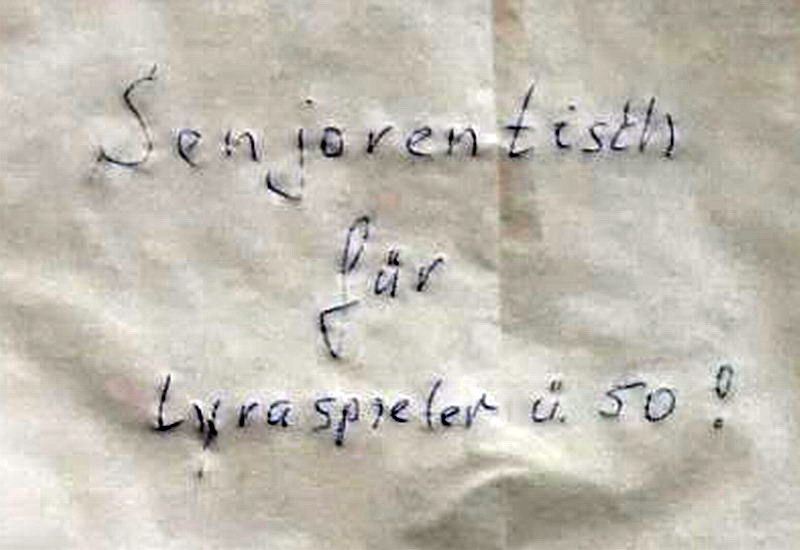 Senjorentisch
für
Lyraspieler ü. 50!